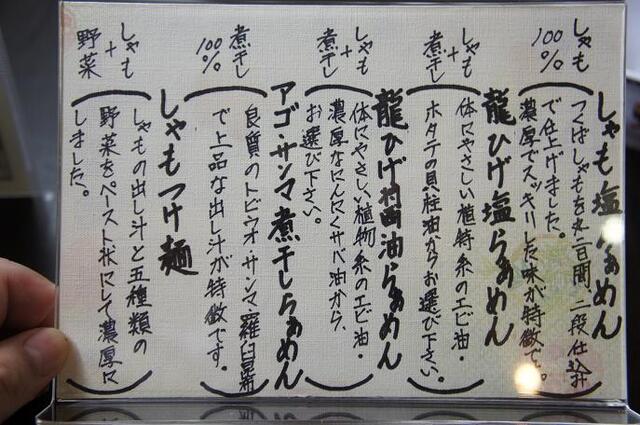 しゃも塩らぁめん
しゃも
100%
つくばしゃもを丸二日間、二段仕込み
で仕上げました。
濃厚でスッキリした味が特徴です。
龍ひげ塩らぁめん
しゃも
+
煮干し
体にやさしい植物系のエビ油・
ホタテの貝柱油からお選び下さい。
龍ひげ醤油らぁめん
しゃも
+
煮干し
体にやさしい植物系のエビ油・
濃厚なにんにくサバ油から、
お選び下さい。
アゴ・サンマ煮干しらぁめん
煮干し
100%
良質のトビウオ・サンマ・羅臼昆布
で上品な出し汁が特徴です。
しゃもつけ麺
しゃも
+
野菜
しゃもの出し汁と五種類の
野菜をペースト状にして濃厚に
しました。